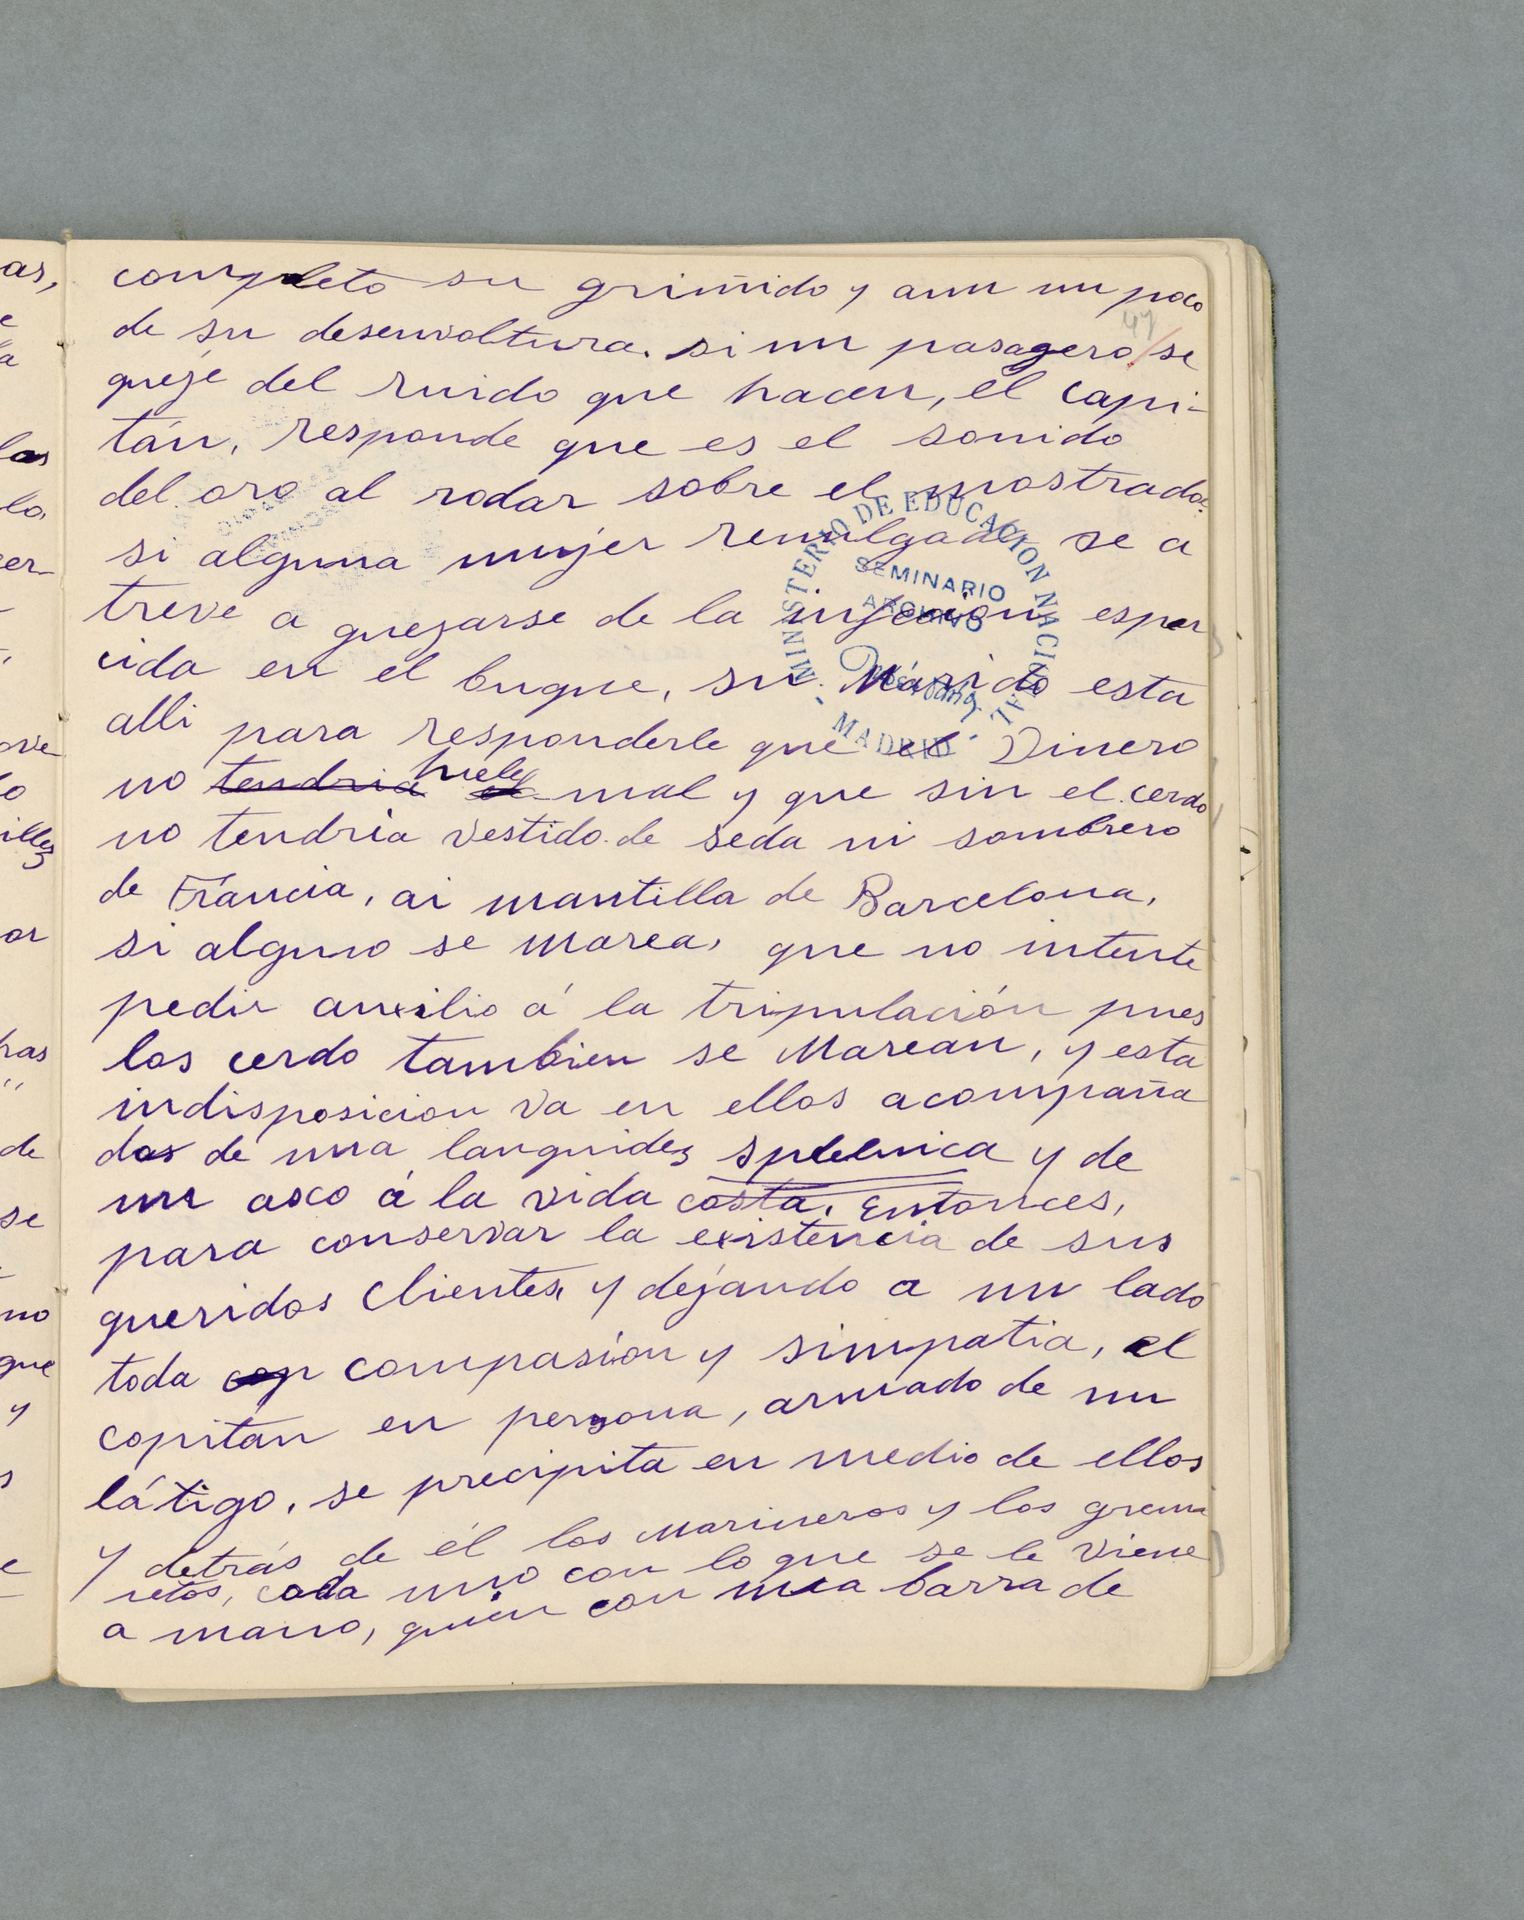 completo su griñido y aun un poco
de su desenvoltura. si un pasagero / se
47
queje del ruido que hacen, el capi-
tán, responde que es el sonido
del oro al rodar sobre el mostrador.
si alguna mujer remilgada se a
treve a quejarse de la infeción espar
cida en el buque, su Marido esta
alli para responderle que el Dinero
no tendria huele mal y que sin el cerdo
no tendria vestido de seda ni sombrero
de Francia, ni mantilla de Barcelona,
si alguno se marea, que no intente
pedir auxilio á la tripulación pues
los cerdo tambien se Marean, y esta
indisposicion va en ellos acompaña
das de una languidez spleenica y de
un asco á la vida costa. Entonces,
para conservar la existencia de sus
queridos Clientes, y dejando a un lado
toda cop compasión y simpatia, el
copitan en persona, armado de un
látigo, se precipita en medio de ellos
y detrás de él los Marineros y los grume
netos, cada uno con lo que se le viene
a mano, quien con una barra de
MINISTERIO DE EDUCACION NACIONAL
SEMINARIO
ARCHIVO
- MADRID -
as,
e
la
las
lo,
cer-
ove
lo
illez
or
has
"
de
se
no
que
y
s
e